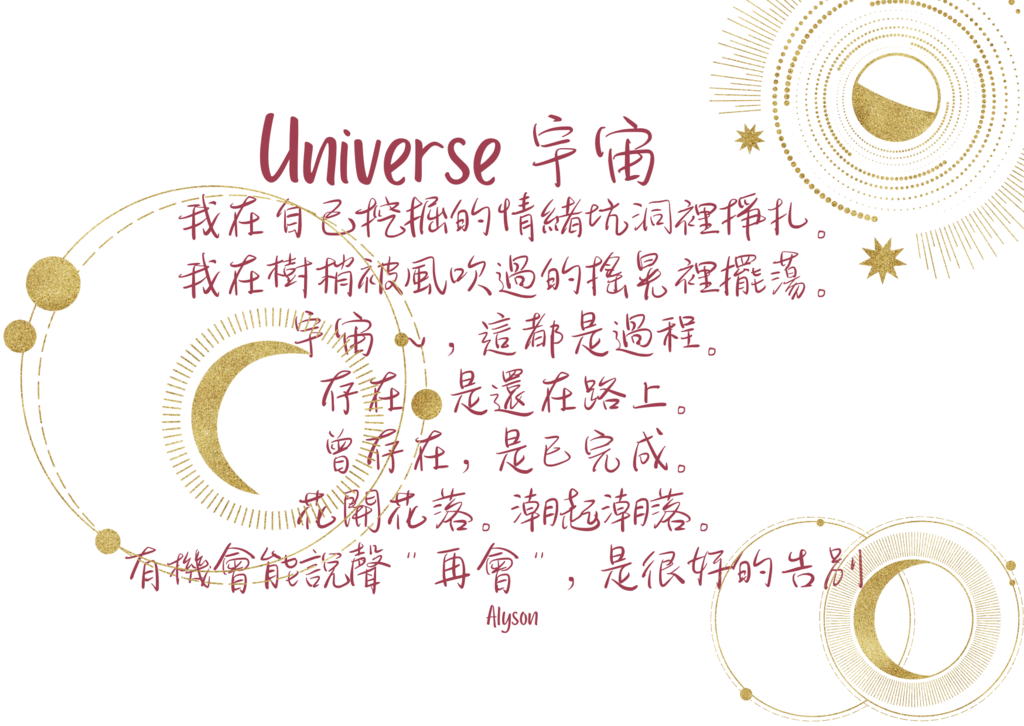 Universe 宇宙
我在自己挖掘的情緒坑洞裡掙扎。
我在樹梢被風吹過的搖晃裡擺蕩。
宇宙~，這都是過程。
存在 是還在路上。
曾存在，是已完成。
花開花落。潮起潮落。
有機會能說聲"再會"，是很好的告別
Alyson